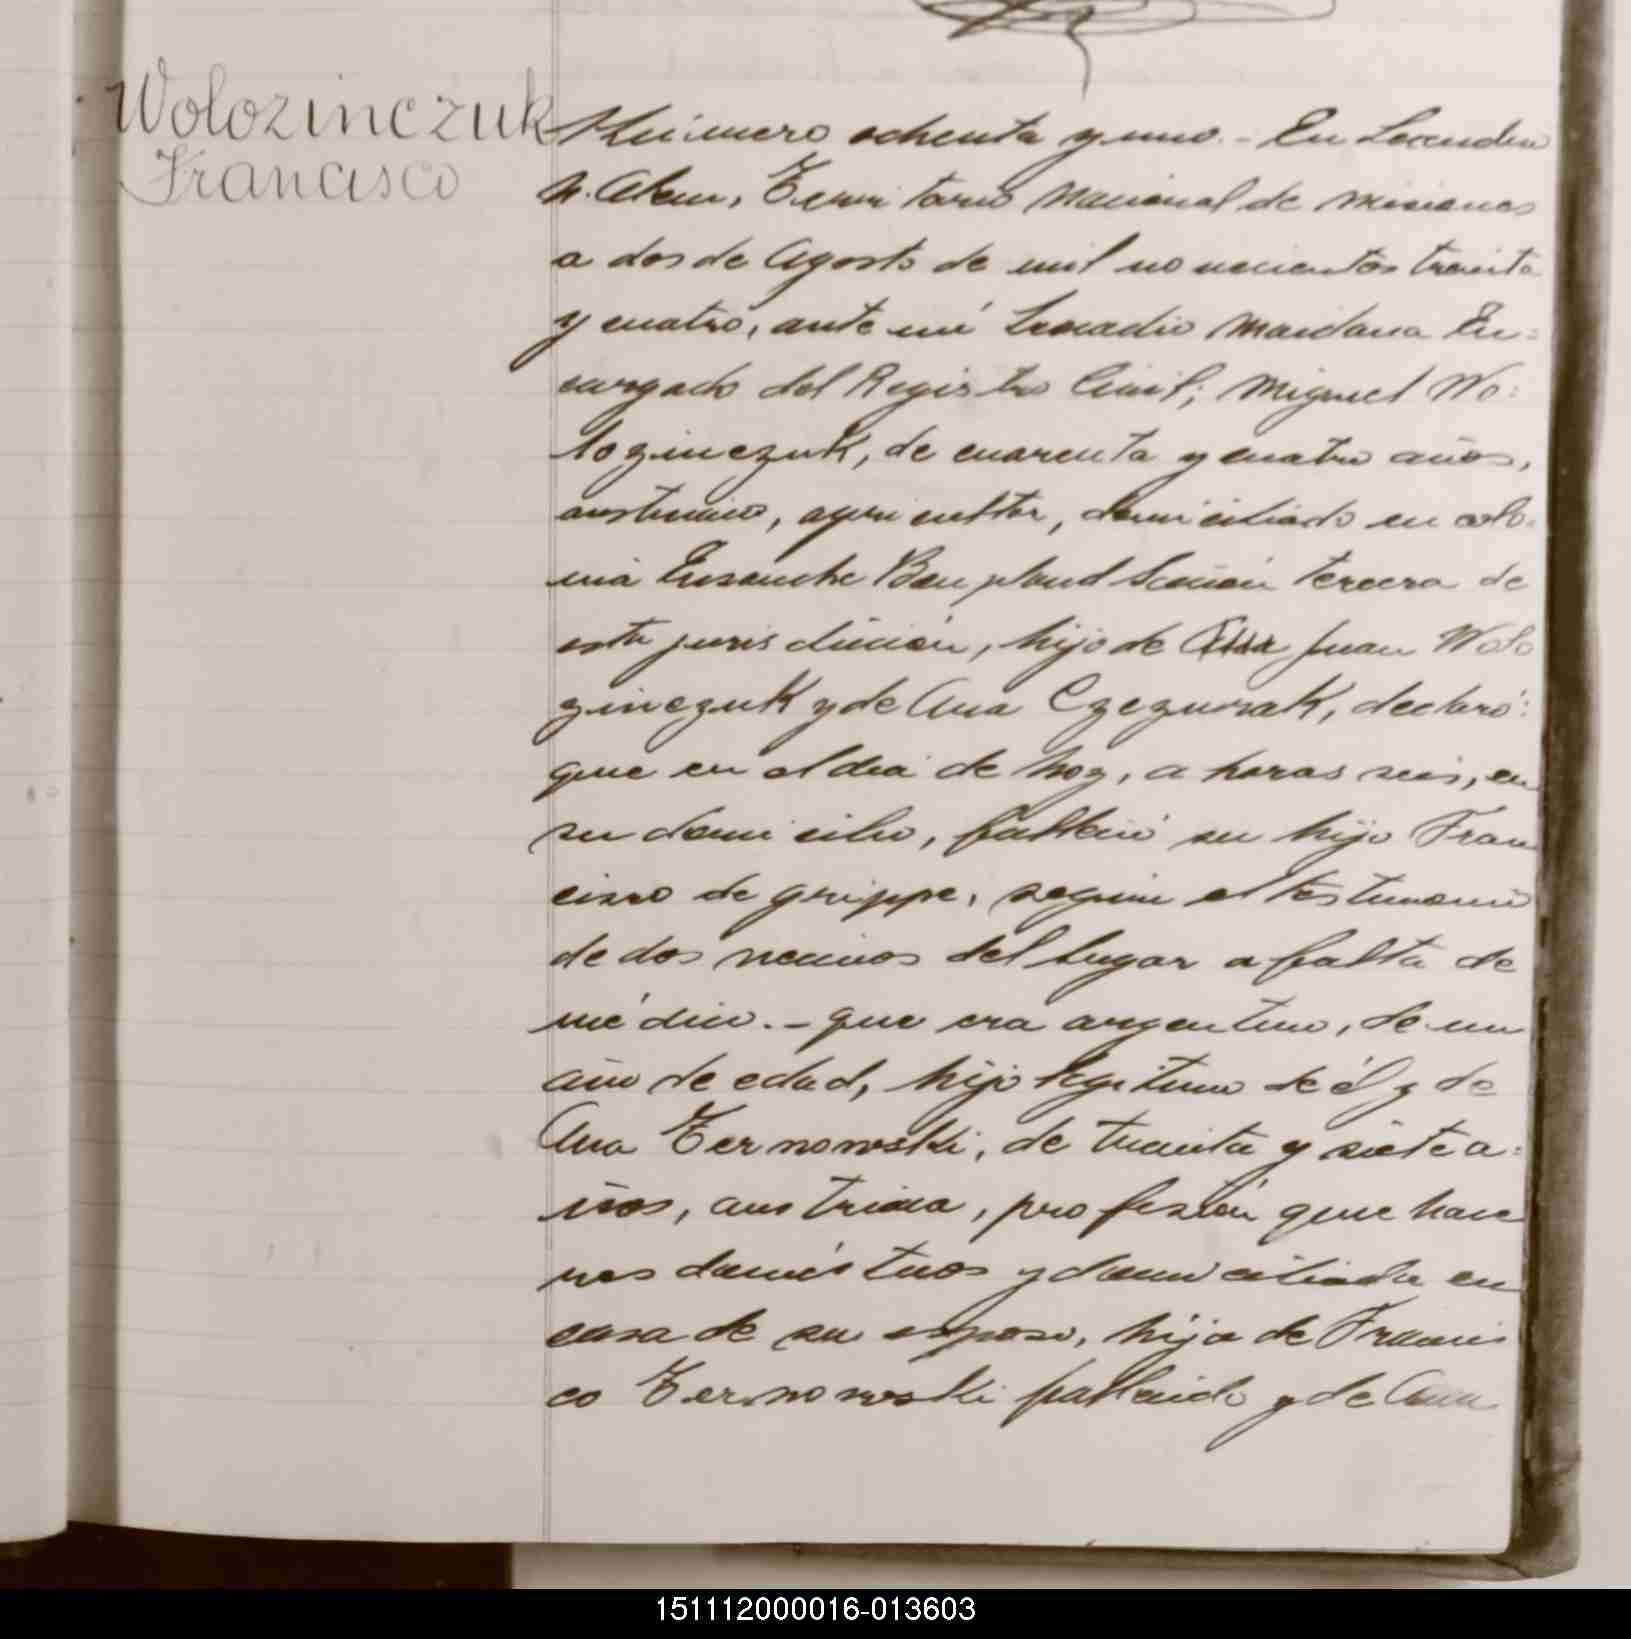 Wolozinczuk
Francisco
Número ochenta y uno.- En Leandro
N. Alem, Territorio Nacional de Misiones
a dos de Agosto de mil novecientos treinta
y cuatro, ante mí Leocadio Maidana En-
cargado del Registro Civil; Miguel Wo-
lozinczuk, de cuarenta y cuatro años,
austriaco, agricultor, domiciliado en colo-
nia Ensanche Bonpland Sección tercera de
esta jurisdicción, hijo de Juan Wolo
zinczuk y de Ana Czezurak, declaró:
que en el dia de hoy, a horas seis, en
su domicilio, falleció su hijo Fran
cisco de grippe, según el testimonio
de dos vecinos del lugar a falta de
médico.- que era argentino, de un
año de edad, hijo legitimo de él y de
Ana Zernowski, de treinta y siete a-
ños, austriaca, profesión que hace
res domésticos y domiciliada en
casa de su esposo, hija de Francis
co Zernowski fallecido y de Ana
151112000016-013603